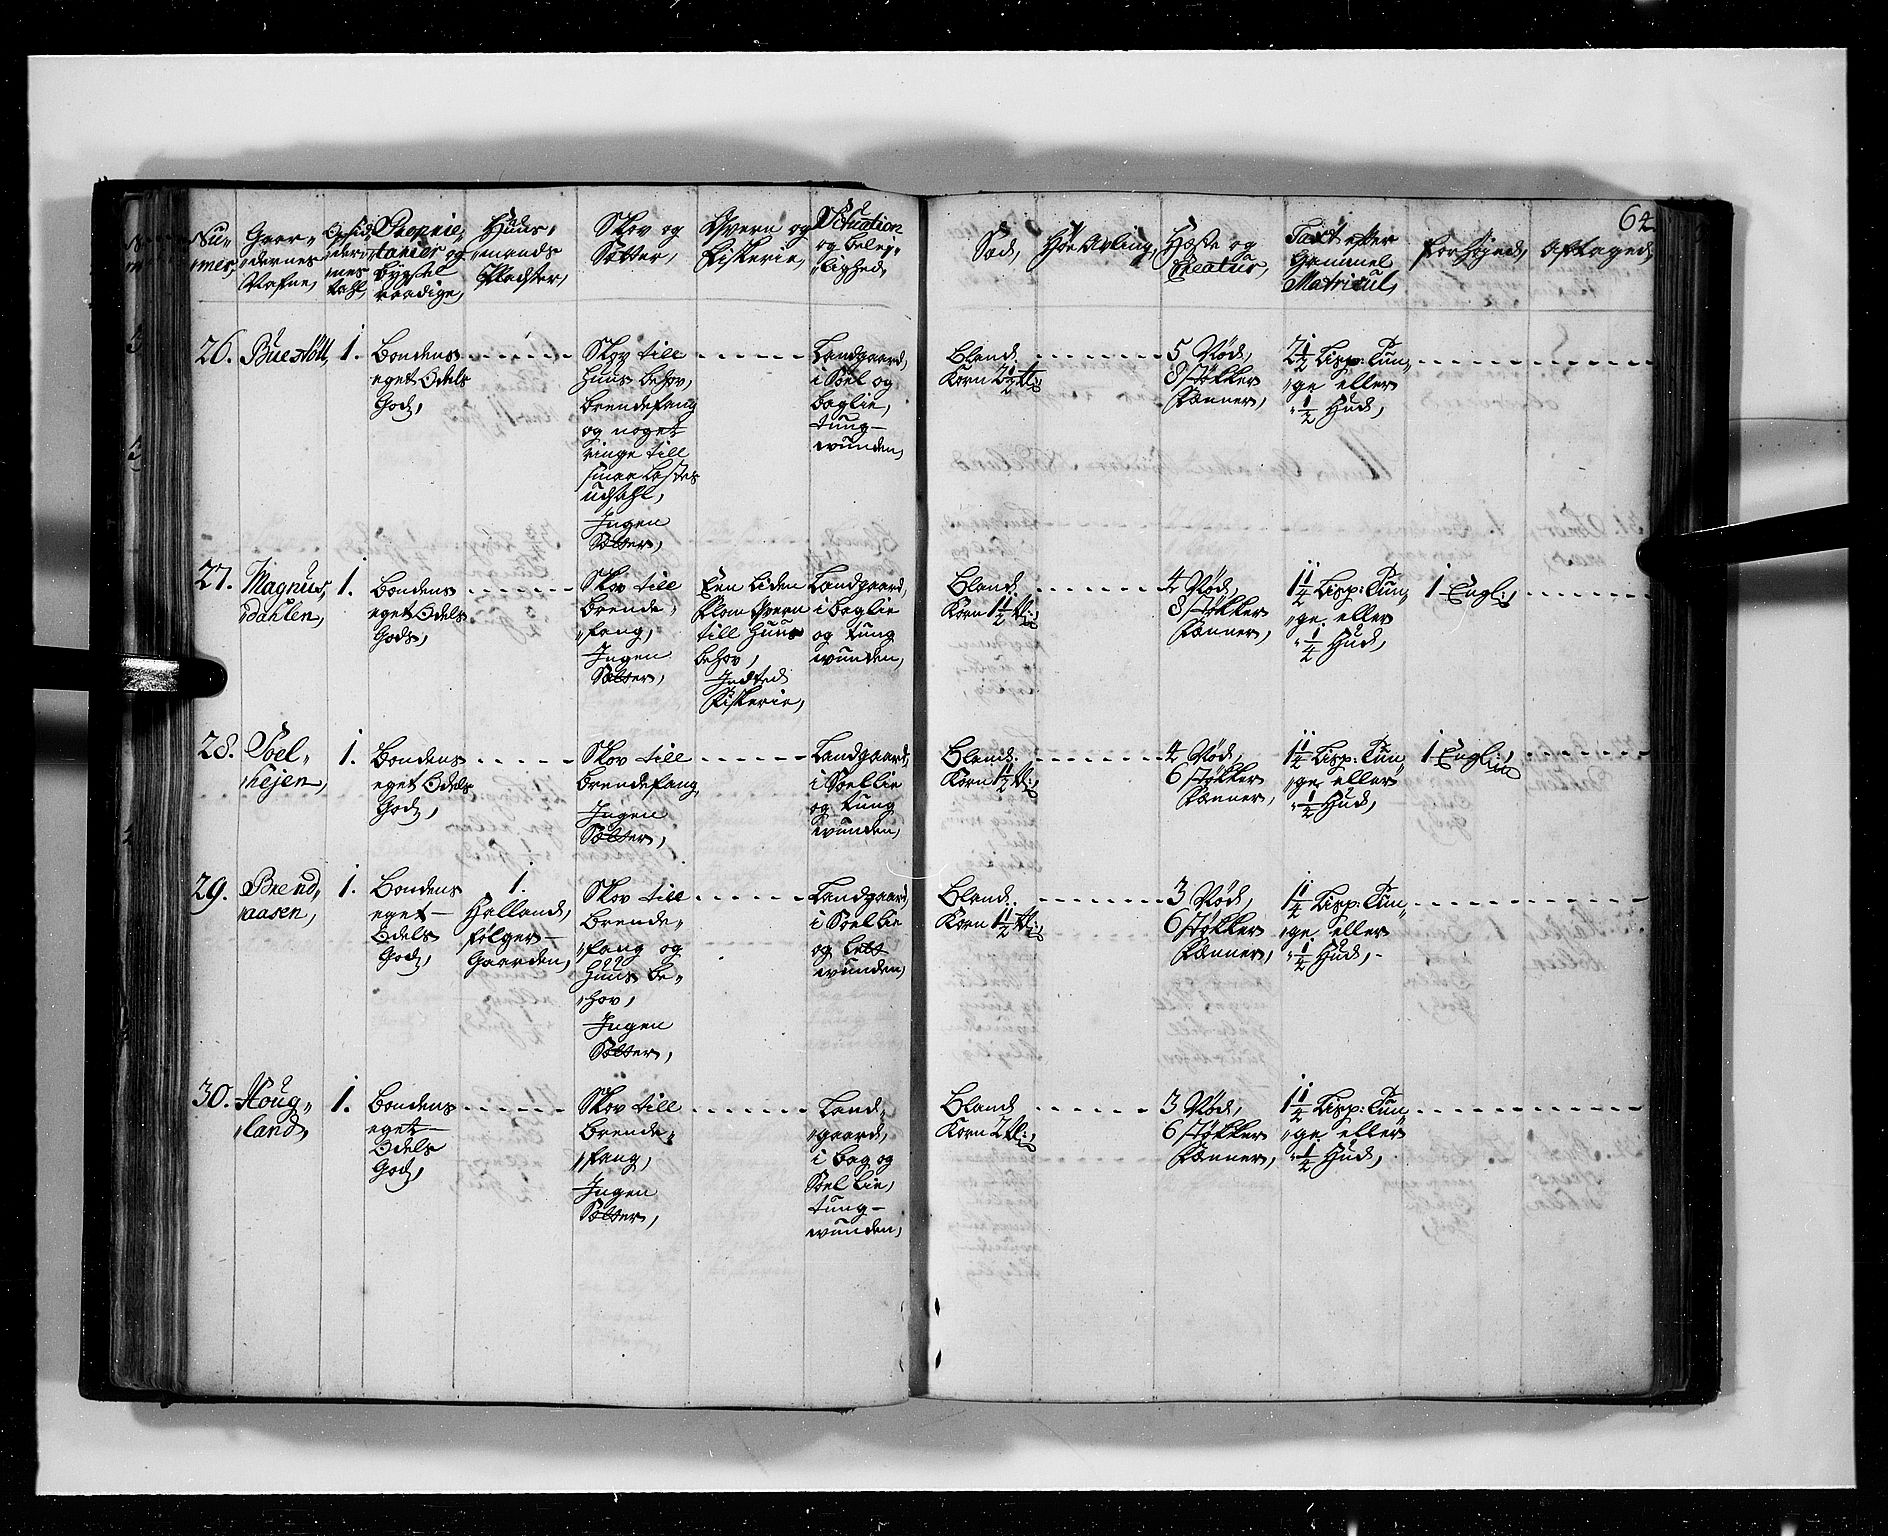 64.
Nu-
mer,
Gaar-
dernes
Nafne,
Opsid,
dernes
Tahl,
Proprie,
tairer og
bygsel
raadige,
Huus,
mands
Pladser,
Skov og
Sætter,
Qvern og
Fiskerie,
Situation
og belej,
lighed,
Sæd,
Høe Avling,
Hæste og
Creatur,
Taxt efter
Gammel
Matricul,
forhøjed,
Aftaged,
26.
Buestøtt,
1.
Bondens
eget Odels
Gods,
Skov till
Huus behov,
brendefang
og noget
ringe till
smaa lastes
udsahl,
Ingen
Sætter,
Landgaard,
i Soel og
baglie,
tung-
vunden,
Bland
Korn 2 1/2 tl:,
5 Nød,
8 støkker
Sæuner,
2 1/2 Lisp: Tun,
ge eller
1/2 Hud,
27.
Magnus,
dahlen,
1.
Bondens
eget Odels
Gods,
Skov till
brende,
fang,
Ingen
Sætter,
Een liden
flom Qvern
till Huus
behov,
Indted
Fiskerie,
Landgaard,
i baglie
og tung
vunden,
Bland
Korn 1 1/2 tl:,
4 Nød,
8 støkker
Sæuner,
1 1/4 Lisp: Tun,
ge eller
1/4 Hud,
1 Engl:,
28.
Soel-
hejen,
1.
Bondens
eget Odels
Gods,
Skov till
brendefang,
Ingen
Sætter,
Landgaard,
i Soellie
og tung
vunden,
Bland
Korn 1 1/2 tl:,
4 Nød,
6 støkker
Sæuner,
1 1/4 Lisp: Tun,
ge eller
1/4 Hud,
1 Engl:,
29.
Brend,
aasen,
1.
Bondens
eget-
Odels
Gods,
1.
Halland,
følger-
Gaarden,
Skov till
brende-
fang og
Huus be-
hov,
Ingen
Sætter,
Landgaard,
i Soellie
og lett
vunden,
Bland
Korn 1 1/2 tl:,
3 Nød,
6 støkker
Sæuner,
1 1/4 Lisp: Tun,
ge eller
1/4 Hud,
30.
Houg,
land,
1.
Bondens
eget-
Odels
Gods,
Skov till
brende,
fang,
Ingen
Sætter,
Land,
gaard,
i bag og
Soel lie,
tung-
vunden,
Bland
Korn 2 tl:,
3 Nød,
6 støkker
Sæuner,
1 1/4 Lisp: Tun,
ge eller
1/4 Hud,